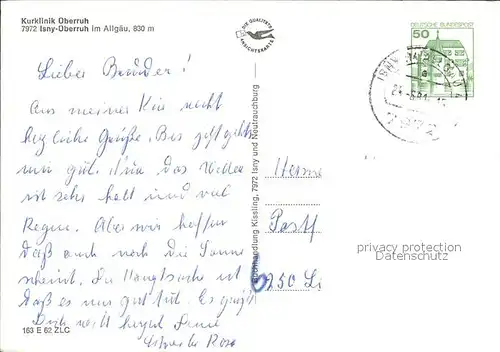 Kurklinik Oberruh
7972 Isny-Oberruh im Allgäu, 830 m
DIE QUALITÄTS
ANSICHTSKARTE
DEUTSCHE BUNDESPOST
50
7972
Lieber Bruder!
Aus meiner Kur recht
herzliche Grüße. Bis jetzt geht
mir gut. Nur das Wetter
ist sehr kalt und viel
Regen. Aber wir hoffen
daß auch noch die Sonne
scheint. Die Hauptsache ist
daß es uns gut tut. Es grüßt
Dich recht herzl. Deine
Schwester Rosa
Kissling, 7972 Isny und Neutrauchburg
Herrn
Postf
6250 Li
privacy protection
Datenschutz
163 E 62 ZLC